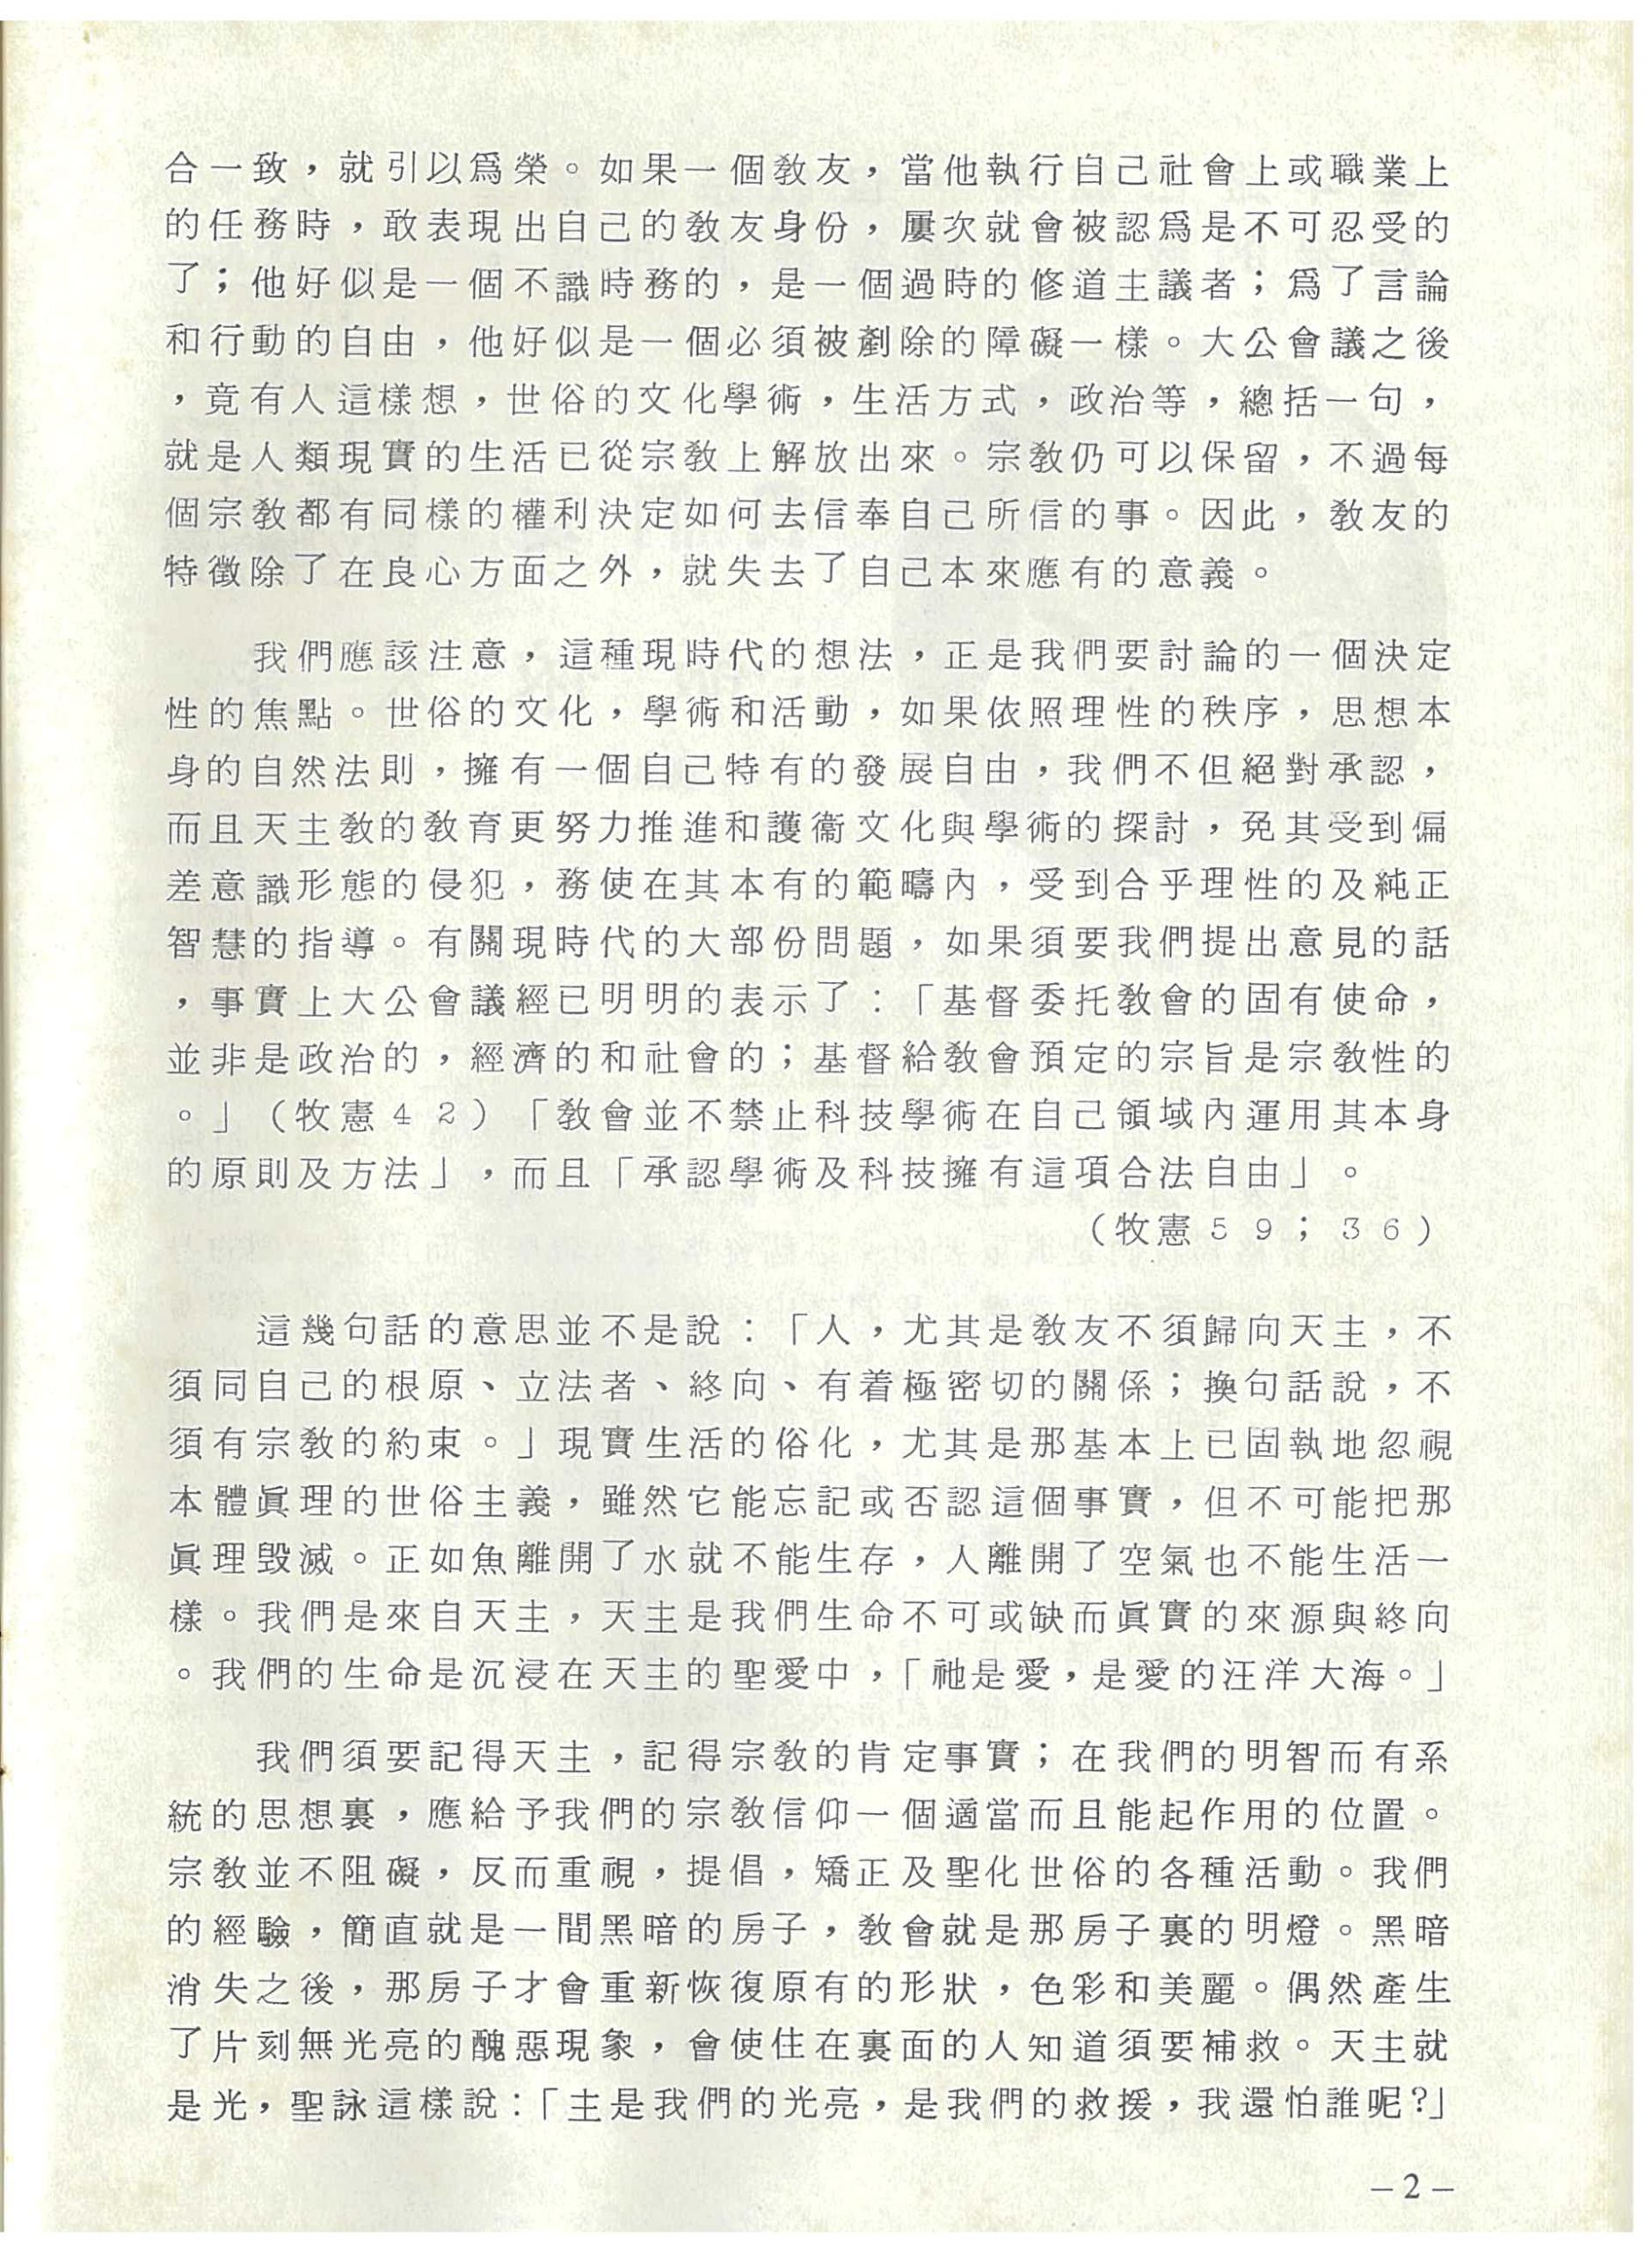 合一致，就引以爲榮。如果一個教友，當他執行自己社會上或職業上
的任務時，敢表現出自己的教友身份，屢次就會被認爲是不可忍受的
了；他好似是一個不識時務的，是一個過時的修道主議者；爲了言論
和行動的自由，他好似是一個必須被剷除的障礙一樣。大公會議之後
，竟有人這樣想，世俗的文化學術，生活方式，政治等，總括一句，
就是人類現實的生活已從宗教上解放出來。宗教仍可以保留，不過每
個宗教都有同樣的權利決定如何去信奉自己所信的事。因此，教友的
特徵除了在良心方面之外，就失去了自己本來應有的意義。
我們應該注意，這種現時代的想法，正是我們要討論的一個決定
性的焦點。世俗的文化，學術和活動，如果依照理性的秩序，思想本
身的自然法則，擁有一個自己特有的發展自由，我們不但絕對承認，
而且天主教的教育更努力推進和護衞文化與學術的探討，免其受到偏
差意識形態的侵犯，務使在其本有的範疇內，受到合乎理性的及純正
智慧的指導。有關現時代的大部份問題，如果須要我們提出意見的話
，事實上大公會議經已明明的表示了：「基督委托教會的固有使命，
並非是政治的，經濟的和社會的；基督給教會預定的宗旨是宗教性的
。」（牧憲４２）「教會並不禁止科技學術在自己領域內運用其本身
的原則及方法」，而且「承認學術及科技擁有這項合法自由」。
（牧憲５９；３６）
這幾句話的意思並不是說：「人，尤其是教友不須歸向天主，不
須同自己的根原、立法者、終向、有着極密切的關係；換句話說，不
須有宗教的約束。」現實生活的俗化，尤其是那基本上已固執地忽視
本體眞理的世俗主義，雖然它能忘記或否認這個事實，但不可能把那
眞理毀滅。正如魚離開了水就不能生存，人離開了空氣也不能生活一
樣。我們是來自天主，天主是我們生命不可或缺而眞實的來源與終向
。我們的生命是沉浸在天主的聖愛中，「祂是愛，是愛的汪洋大海。」
我們須要記得天主，記得宗教的肯定事實；在我們的明智而有系
統的思想裏，應給予我們的宗教信仰一個適當而且能起作用的位置。
宗教並不阻礙，反而重視，提倡，矯正及聖化世俗的各種活動。我們
的經驗，簡直就是一間黑暗的房子，教會就是那房子裏的明燈。黑暗
消失之後，那房子才會重新恢復原有的形狀，色彩和美麗。偶然產生
了片刻無光亮的醜惡現象，會使住在裏面的人知道須要補救。天主就
是光，聖詠這樣說：「主是我們的光亮，是我們的救援，我還怕誰呢？」
－2－